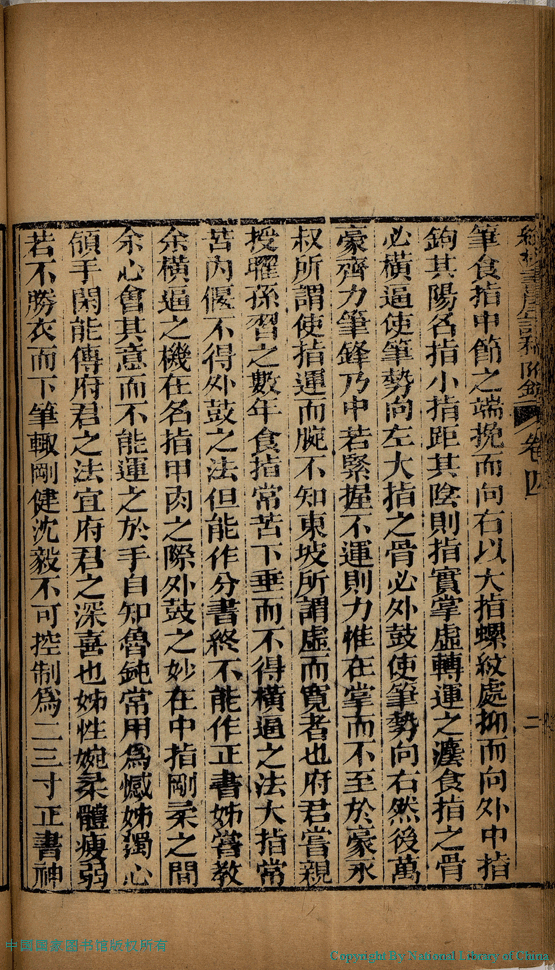 筆食指中節之端挽而向右以大指螺紋處抑而向外中指
鉤其陽名指小指距其陰則指實掌虛轉運之瀍食指之骨
必橫逼使筆勢向左大指之骨必外鼓使筆勢向右然後萬
豪齊力筆鋒乃中若緊握不運則力惟在掌而不至於豪永
叔所謂使指運而腕不知東坡所謂虛而寬者也府君嘗親
授曜孫習之數年食指常苦下垂而不得橫逼之法大指常
苦內偃不得外鼓之法但能作分書終不能作正書姊嘗教
余橫逼之機在名指甲肉之際外鼓之妙在中指剛柔之間
余心會其意而不能運之於手自知魯鈍常用為憾姊獨心
領手閑能傳府君之法宜府君之深喜也姊性婉柔體瘦弱
若不勝衣而下筆輙剛健沈毅不可控制為二三寸正書神
卷四
二
中國國家图书馆版权所有
Copyright By National Library of China